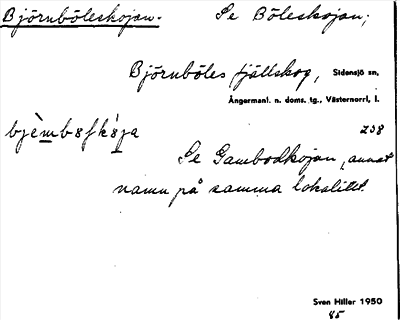 Björnböleskojan. Se Böleskojan;
Björnböles fjällskog, Sidensjö sn,
Ångermanl. n. doms. tg., Västernorrl. l.
bjèmbøſkɷ́ja 238
Se Gambodkojan, annat
namn på samma lokslitet.
Sven Hiller 1950
85